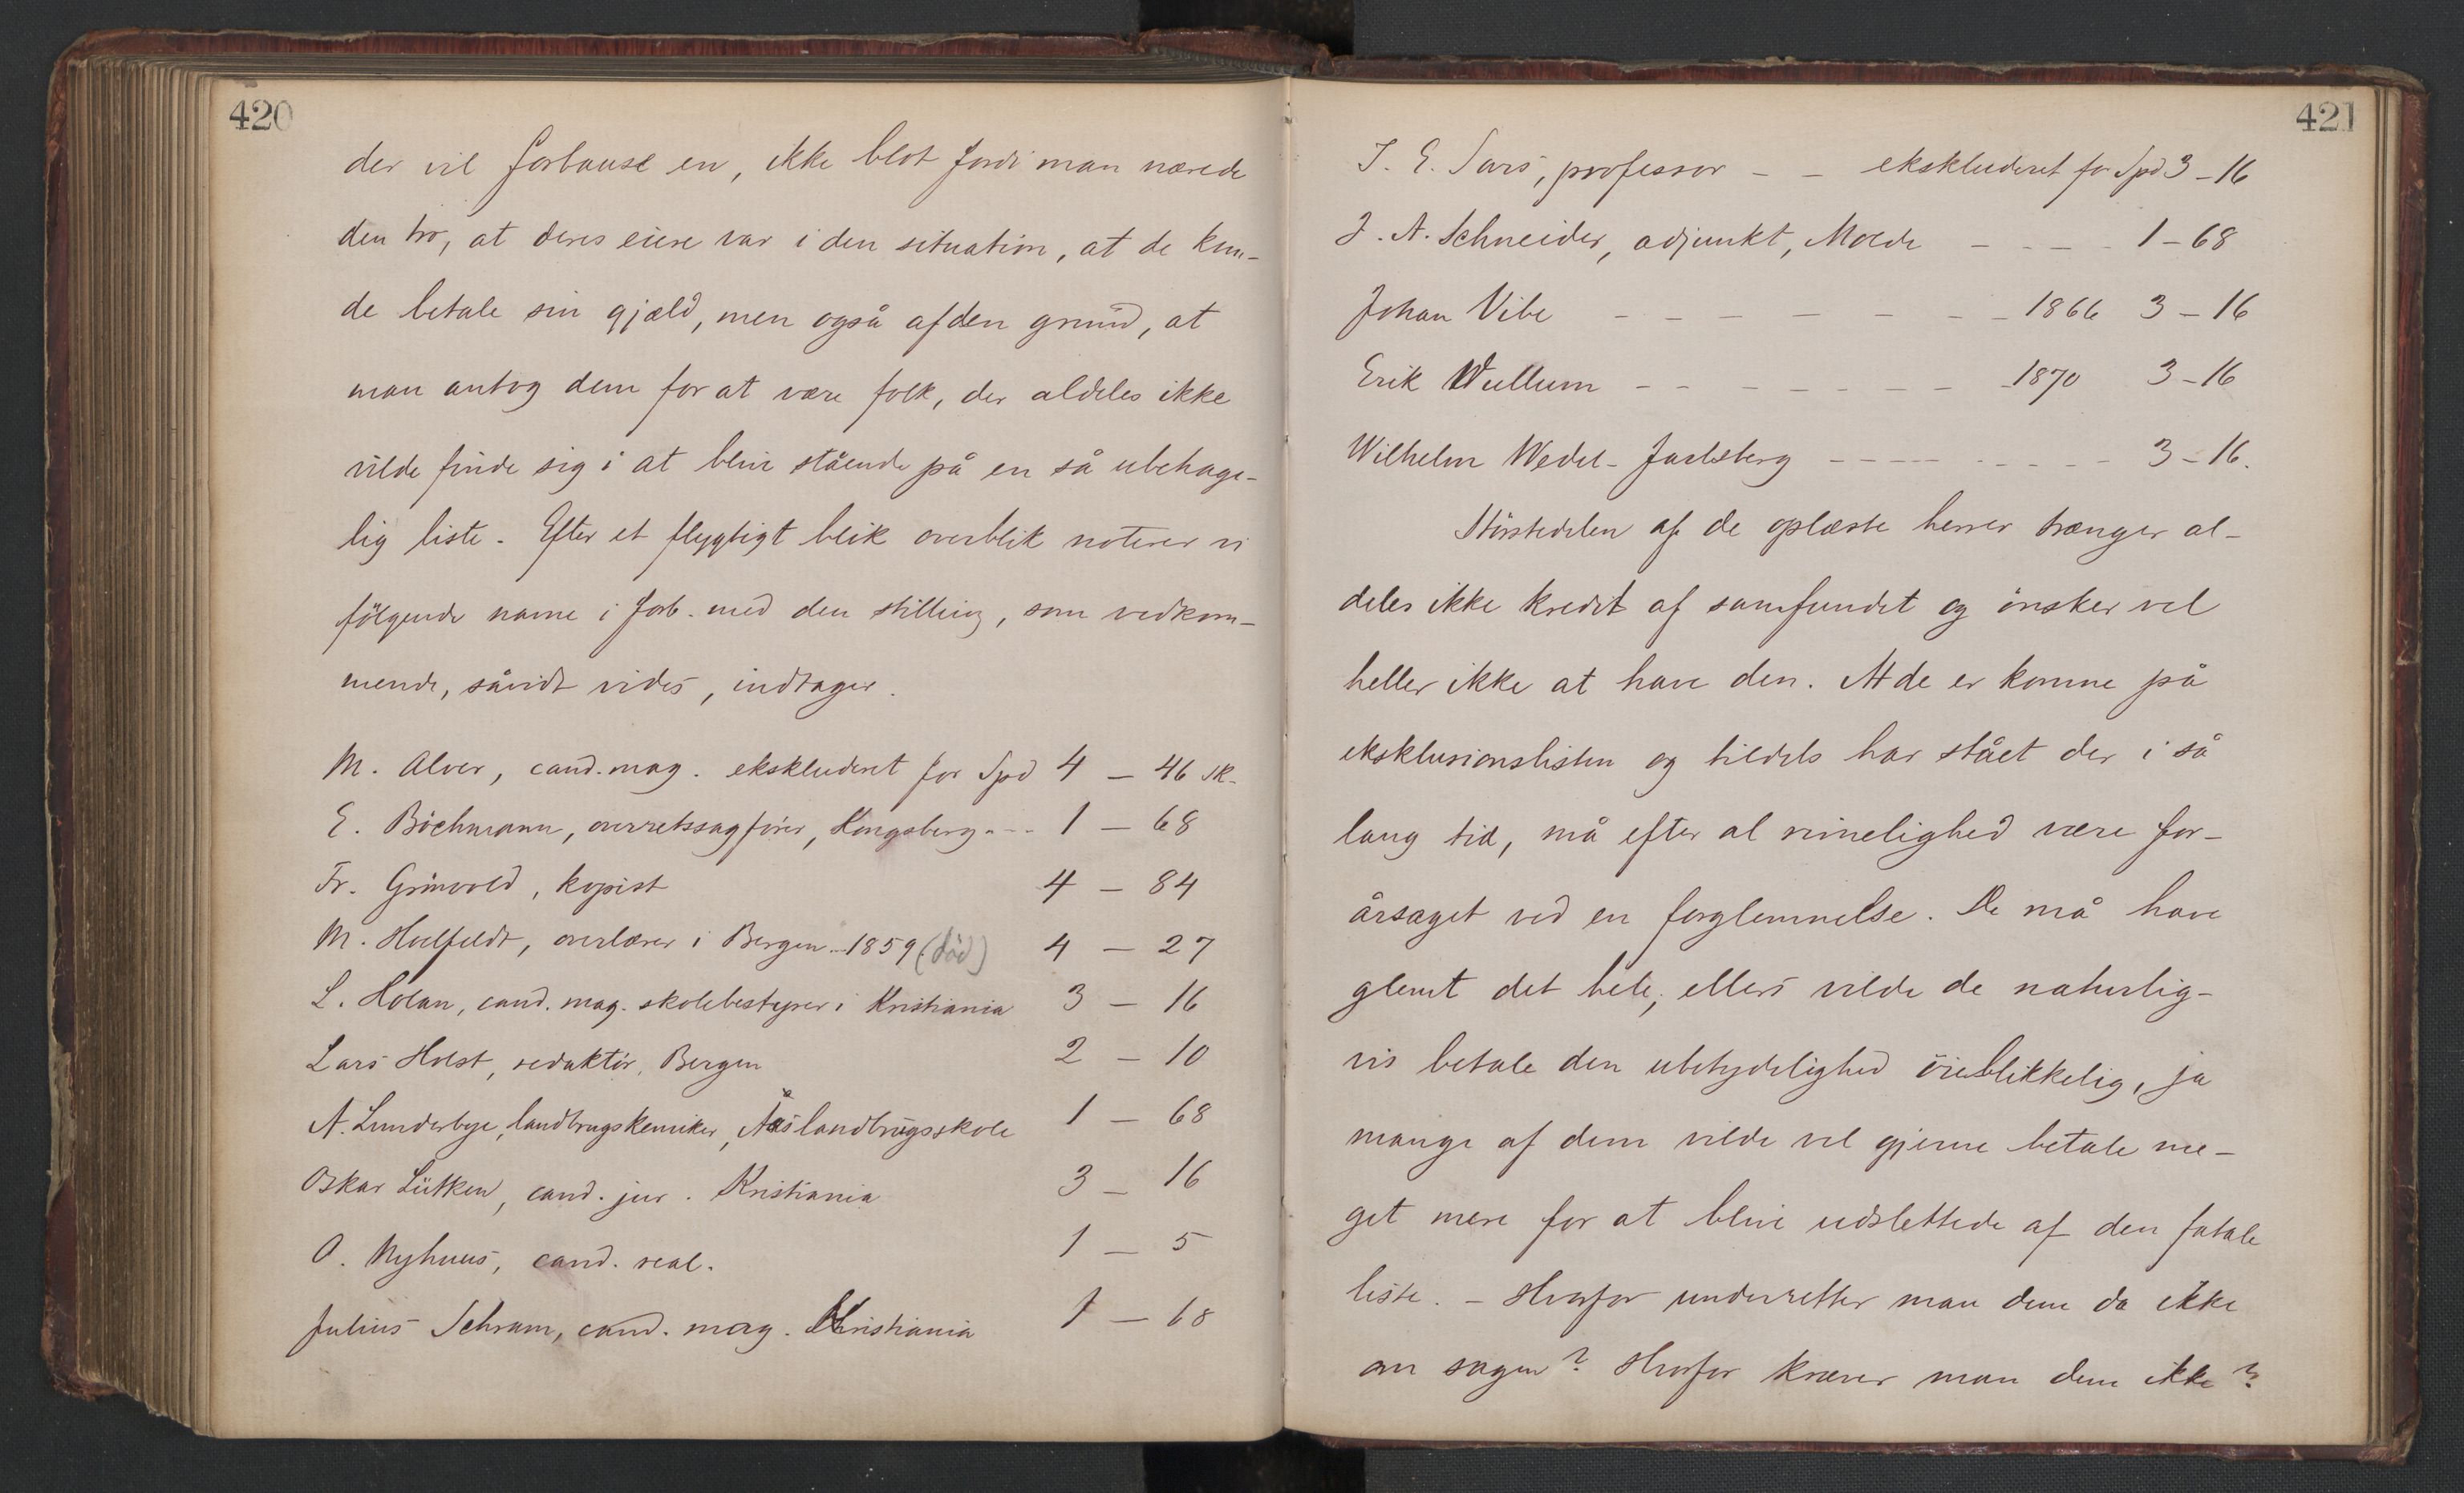 420
der vil forbause en, ikke blot fordi man nærede
den tro, at deres eiere var i den situation, at de kun-
de betale sin gjæld, men også af den grund, at
man antog dem for at være folk, der aldeles ikke
vilde finde sig i at blive stående på en så ubehage-
lig liste. Efter et flygtigt blik overblik noterer vi
følgende navne i forb. med den stilling, som vedkom-
mende, såvidt vides, indtager.
M. Alver, cand. mag. ekskluderet for Spd 4 – 46 sk.
E. Böchmann, overretssagfører, Kongsberg – – – 1 – 68
Fr. Grönvold, kopist 4 – 84
M. Hvelfeldt, overlærer i Bergen – 1859 (död) 4 – 27
L. Holan, cand. mag. skolebestyrer i Kristiania 3 – 16
Lars Holst, redaktör, Bergen 2 – 10
A. Lunderbye, landbrugskemiker, Ås landbrugsskole 1 – 68
Oskar Lütken, cand. jur. Kristiania 3 – 16
O. Nyhuus, cand. real. 1 – 5
Julius Schram, cand. mag. Kristiania 1 – 68
421
J. E. Sars, professor – – ekskluderet for Spd 3 – 16
J. A. Schneider, adjunkt, Molde – – – – 1 – 68
Johan Vibe – – – – – – – 1866 3 – 16
Erik Vullum – – – – – – – 1870 3 – 16
Wilhelm Wedel-Jarlsberg – – – – – – – – – 3 – 16.
Störstedelen af de oplæste herrer trænger al-
deles ikke kredit af samfundet og önsker vel
heller ikke at have den. At de er komne på
eksklusionslisten og tildels har stået der i så
lang tid, må efter al rimelighed være for-
årsaget ved en forglemmelse. De må have
glemt det hele; ellers vilde de naturlig-
vis betale den ubetydelighed öieblikkelig, ja
mange af dem vilde vel gjerne betale me-
get mere for at blive udslettede af den fatale
liste. – Hvorfor underretter man dem da ikke
om sagen? Hvorfor kræver man dem ikke?